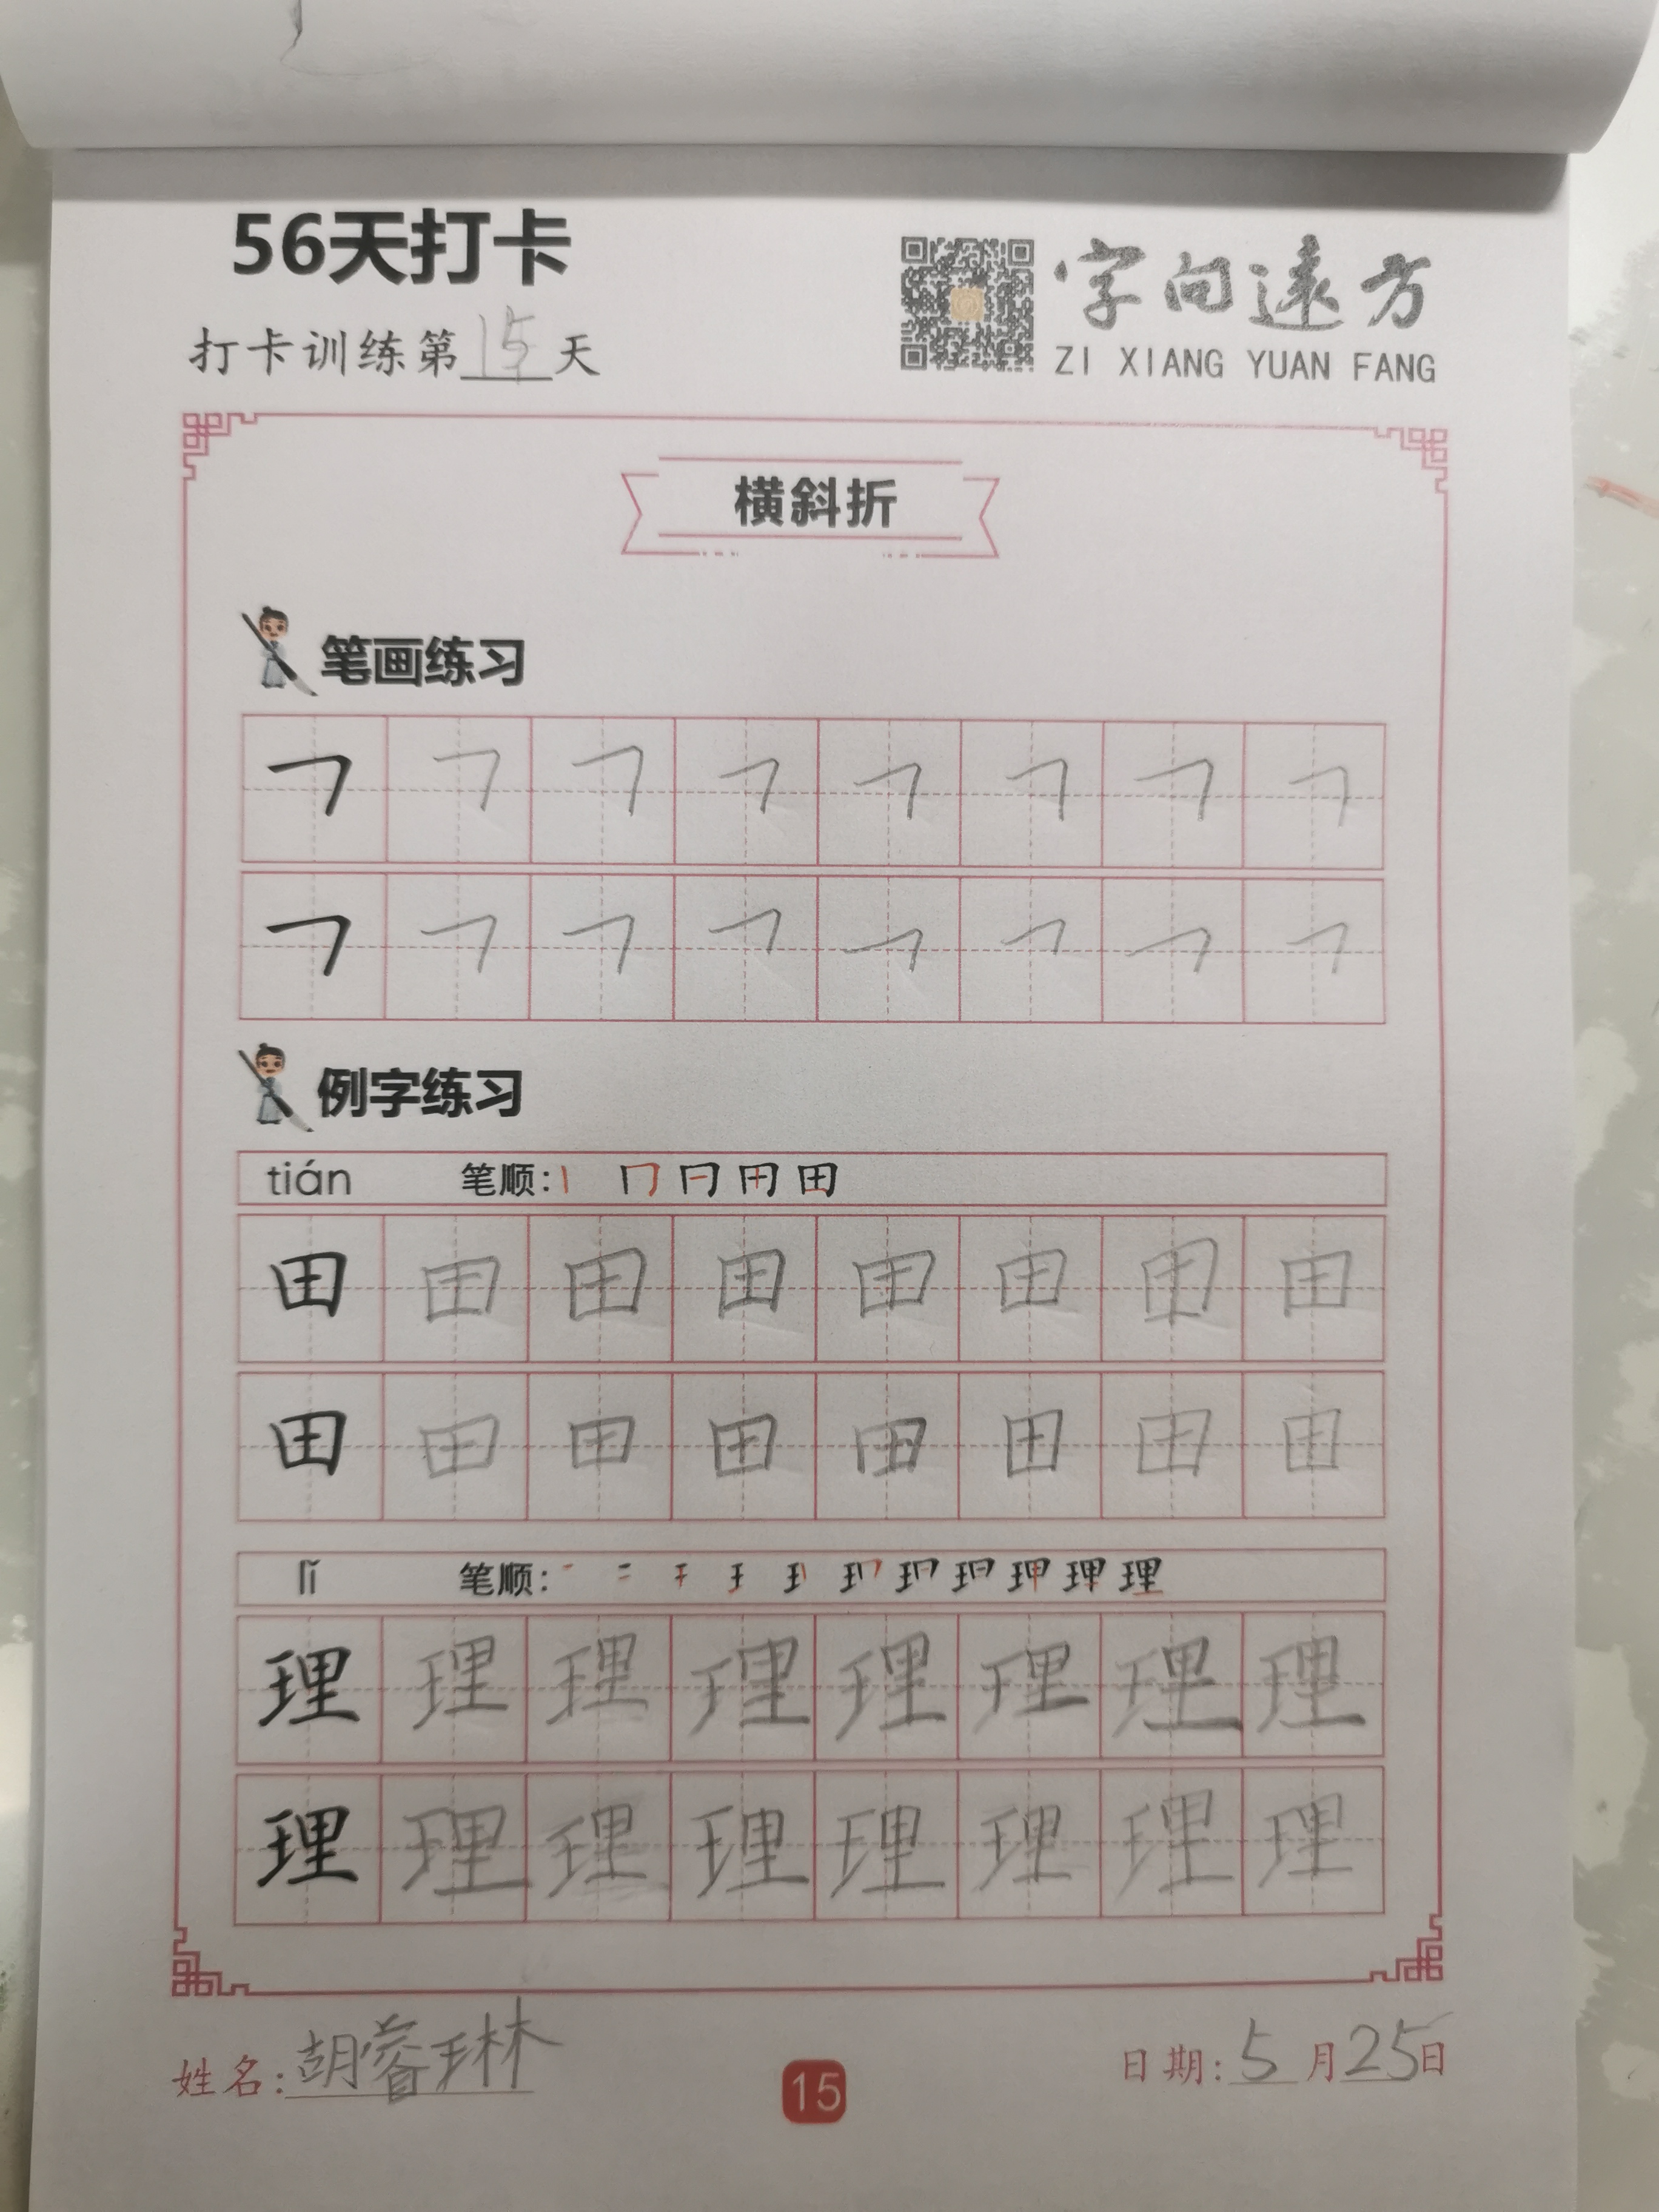 56天打卡
打卡训练第15天
字向遠方
ZI XIANG YUAN FANG
横斜折
笔画练习
㇕ ㇕ ㇕ ㇕ ㇕ ㇕ ㇕ ㇕
㇕ ㇕ ㇕ ㇕ ㇕ ㇕ ㇕ ㇕
例字练习
tián 笔顺:
田 田 田 田 田 田 田 田
田 田 田 田 田 田 田 田
lǐ 笔顺:
理 理 理 理 理 理 理 理
理 理 理 理 理 理 理 理
姓名:胡睿琳
15
日期:5月25日